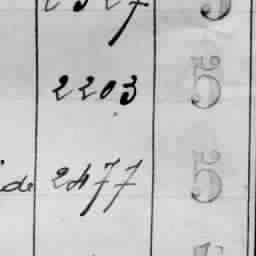 2203 5
de 2477 5